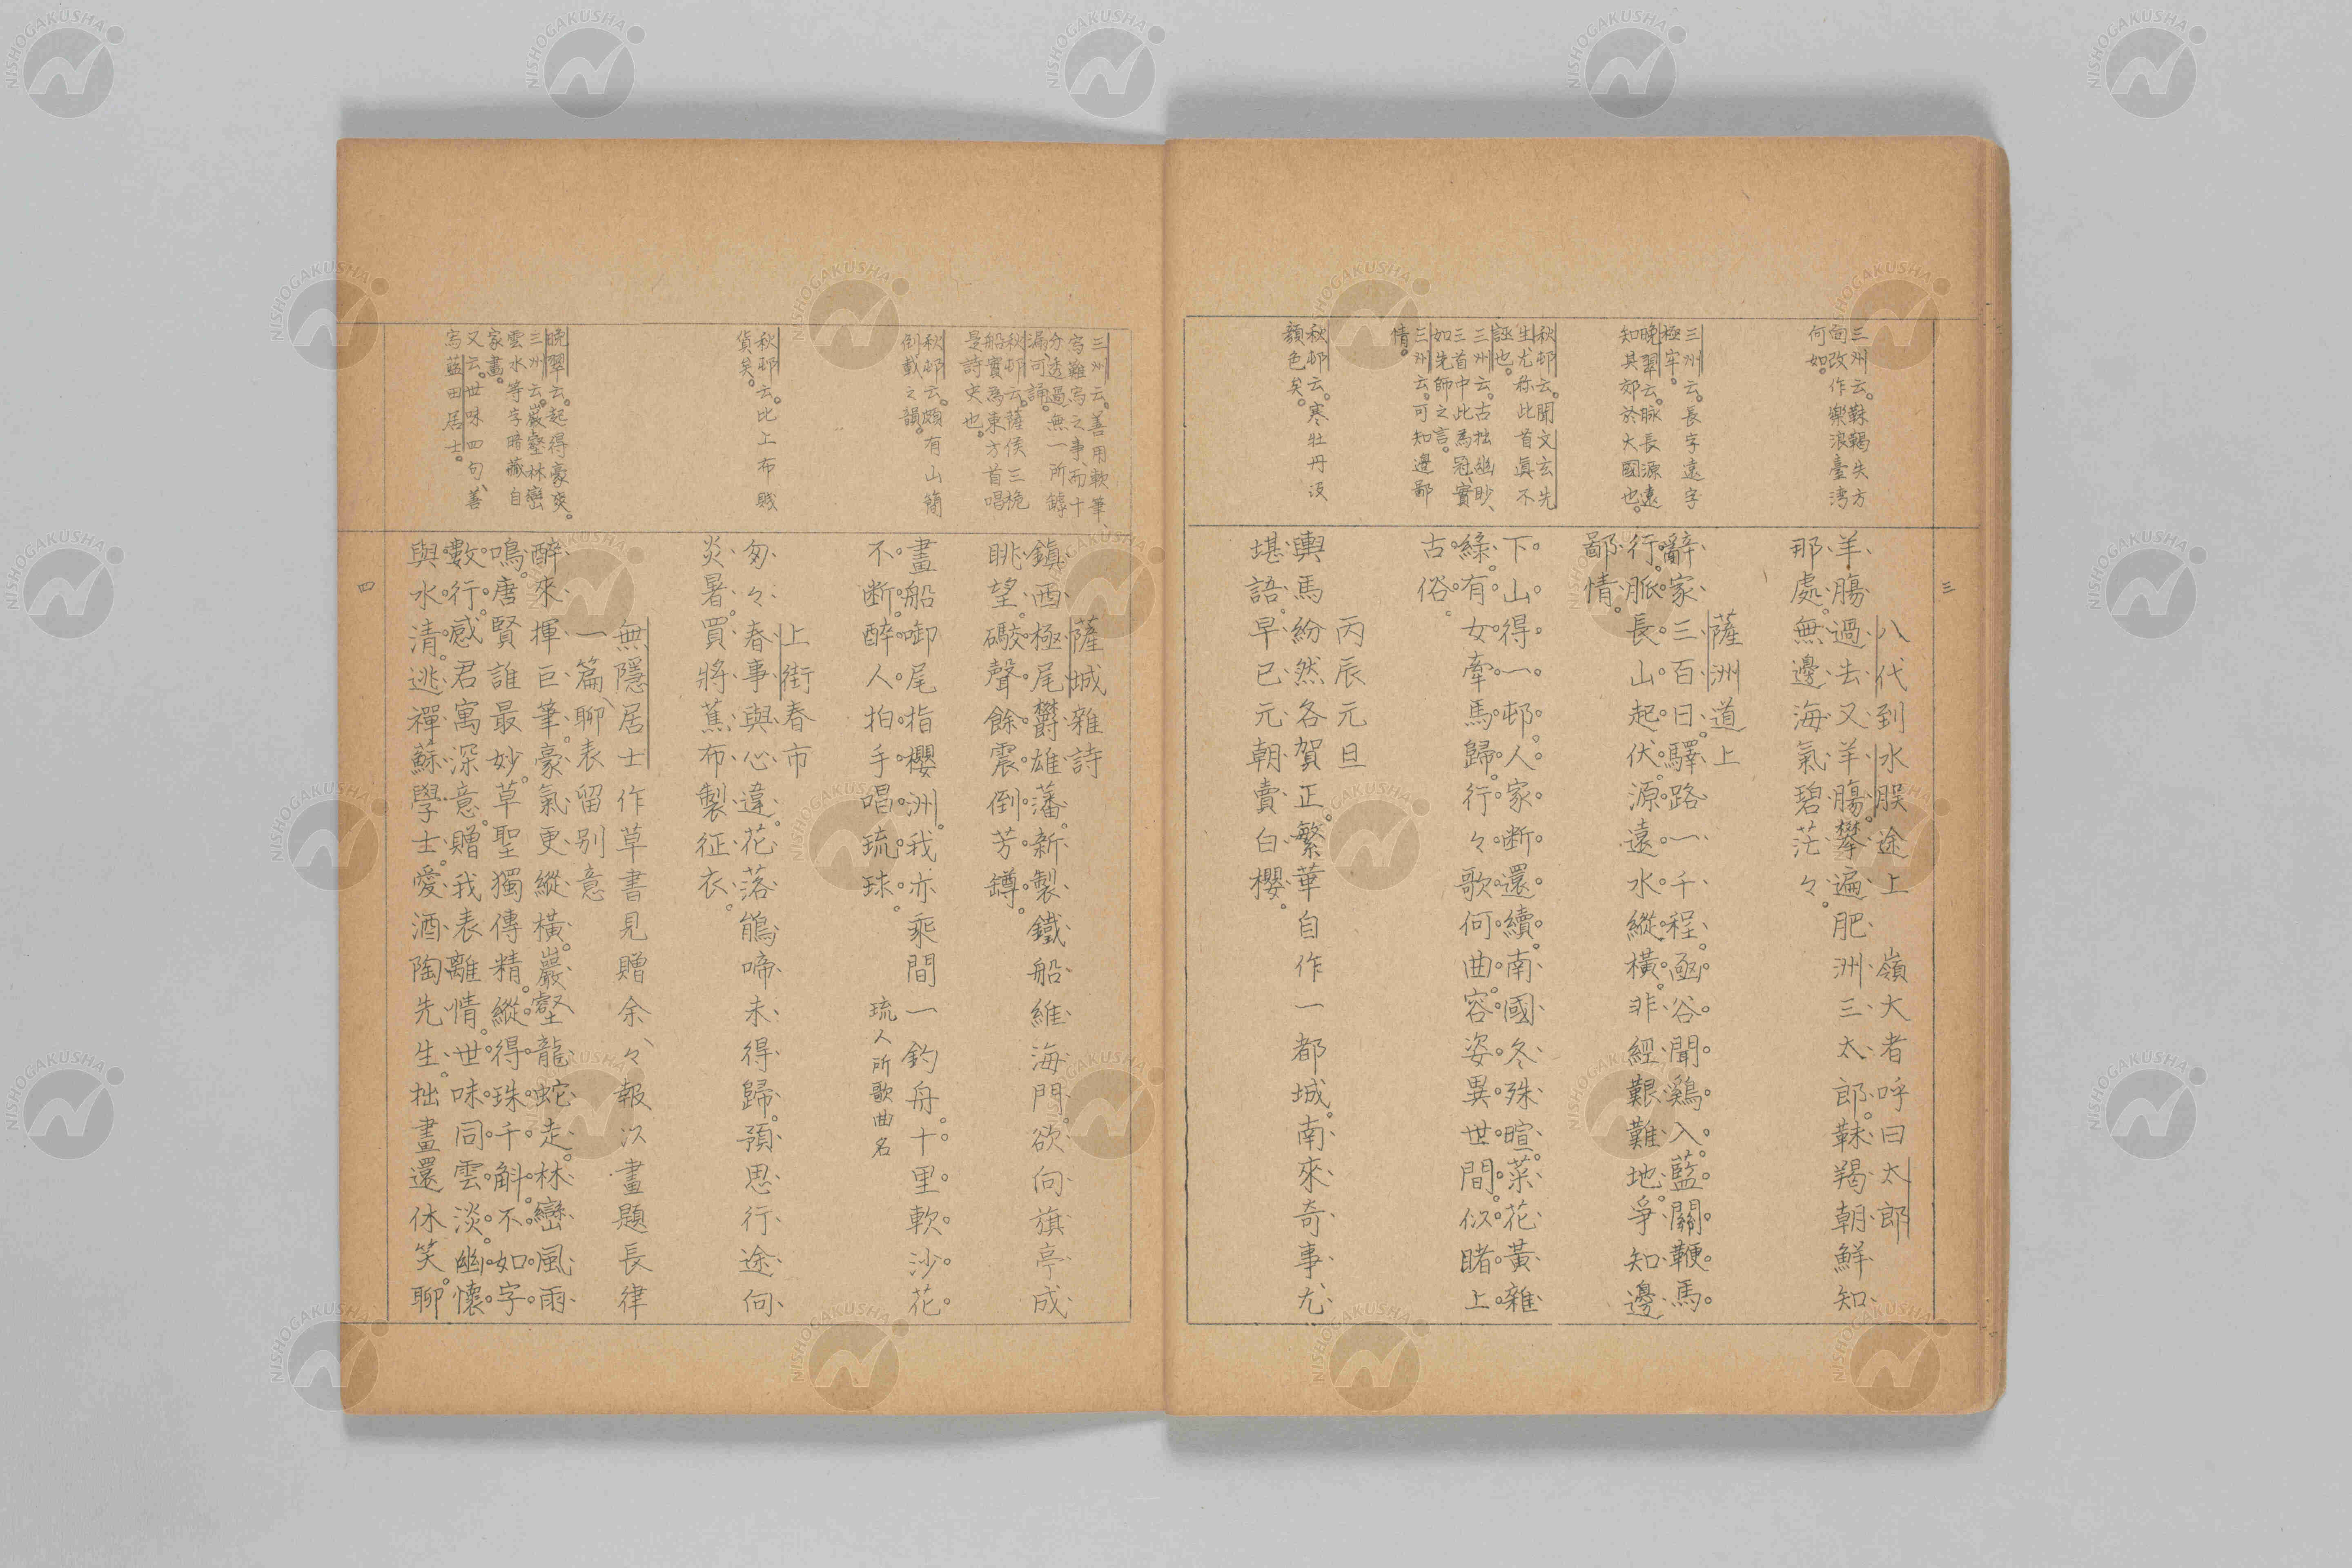 三州云。靺鞨失方
向改作樂浪臺湾
何如。
三州云。長字遠字
極牢。
晩翠云。脉長源遠
知其郊於大國也。
秋邨云。聞文玄先
生尤称此首眞不
誣也。
三州云。古拙幽眇、
三首中此爲冠、實
如先師之言。
三州云。可知邊鄙
情。
秋邨云。寒牡丹没
顔色矣。
三
八代到水脵途上　嶺大者呼曰太郎
羊膓過去又羊膓。攀遍肥洲三太郎。靺羯朝鮮知
那處。無邊海氣碧茫々。
薩洲道上
辭家三百日。驛路一千程。凾谷聞鷄入。藍關鞭馬
行。脈長山起伏。源遠水縱橫。非經艱難地。爭知邊
鄙情。
下山得一邨。人家断還續。南國冬殊暄。菜花黃雜
綠。有女牽馬歸。行々歌何曲。容姿異世間。似睹上
古俗。
丙辰元旦
輿馬紛然各賀正。繁華自作一都城。南來奇事尤
堪語。早已元朝賣白櫻。
三州云。善用軟筆、
寫難寫之事、而十
分透過無一所罅
漏可誦。
秋邨云。薩侯三桅
船實爲東方首唱
是詩史也。
秋邨云。頗有山簡
倒載之韻。
秋邨云。此上布賤
貨矣。
晩翠云。起得豪爽。
三州云。巖壑林巒
雲水等字暗藏自
家畫。
又云。世味四句、善
寫藍田居士。
薩城雜詩
鎭西極尾欝雄藩。新製鐵船維海門。欲向旗亭成
眺望。礮聲餘震倒芳罇。
畫船啣尾指櫻洲。我亦乘間一釣舟。十里軟沙花
不断。醉人拍手唱琉球。　琉人所歌曲名
上街春市
匆々春事與心違。花落鵑啼未得歸。預思行途向
炎暑。買將蕉布製征衣。
無隱居士作草書見贈余々報以畫題長律
一篇聊表留別意
醉來揮巨筆。豪氣更縱橫。巖壑龍蛇走。林巒風雨
鳴。唐賢誰最妙。草聖獨傳精。縱得珠千斛。不如字
數行。感君寓深意。贈我表離情。世味同雲淡。幽懷
與水淸。逃禪蘇學士。愛酒陶先生。拙畫還休笑。聊
四